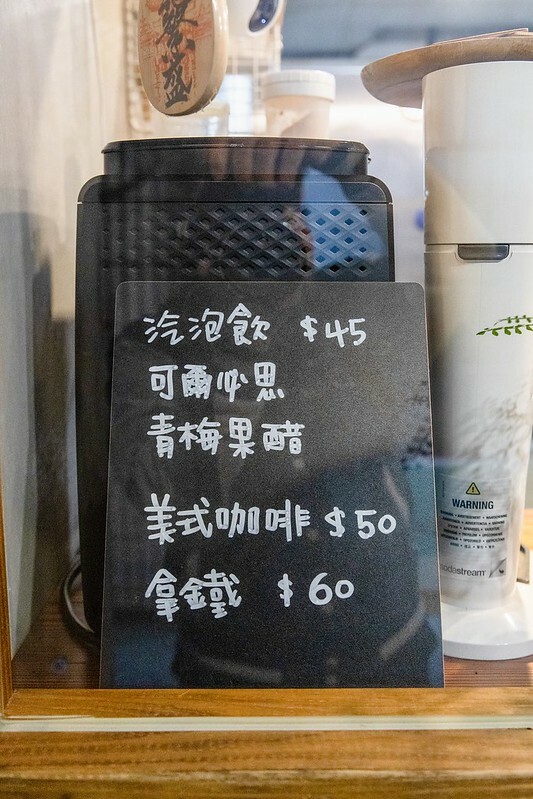 汽泡飲 $45
可爾必思
青梅果醋
美式咖啡 $50
拿鐵 $60
WARNING
sodastream